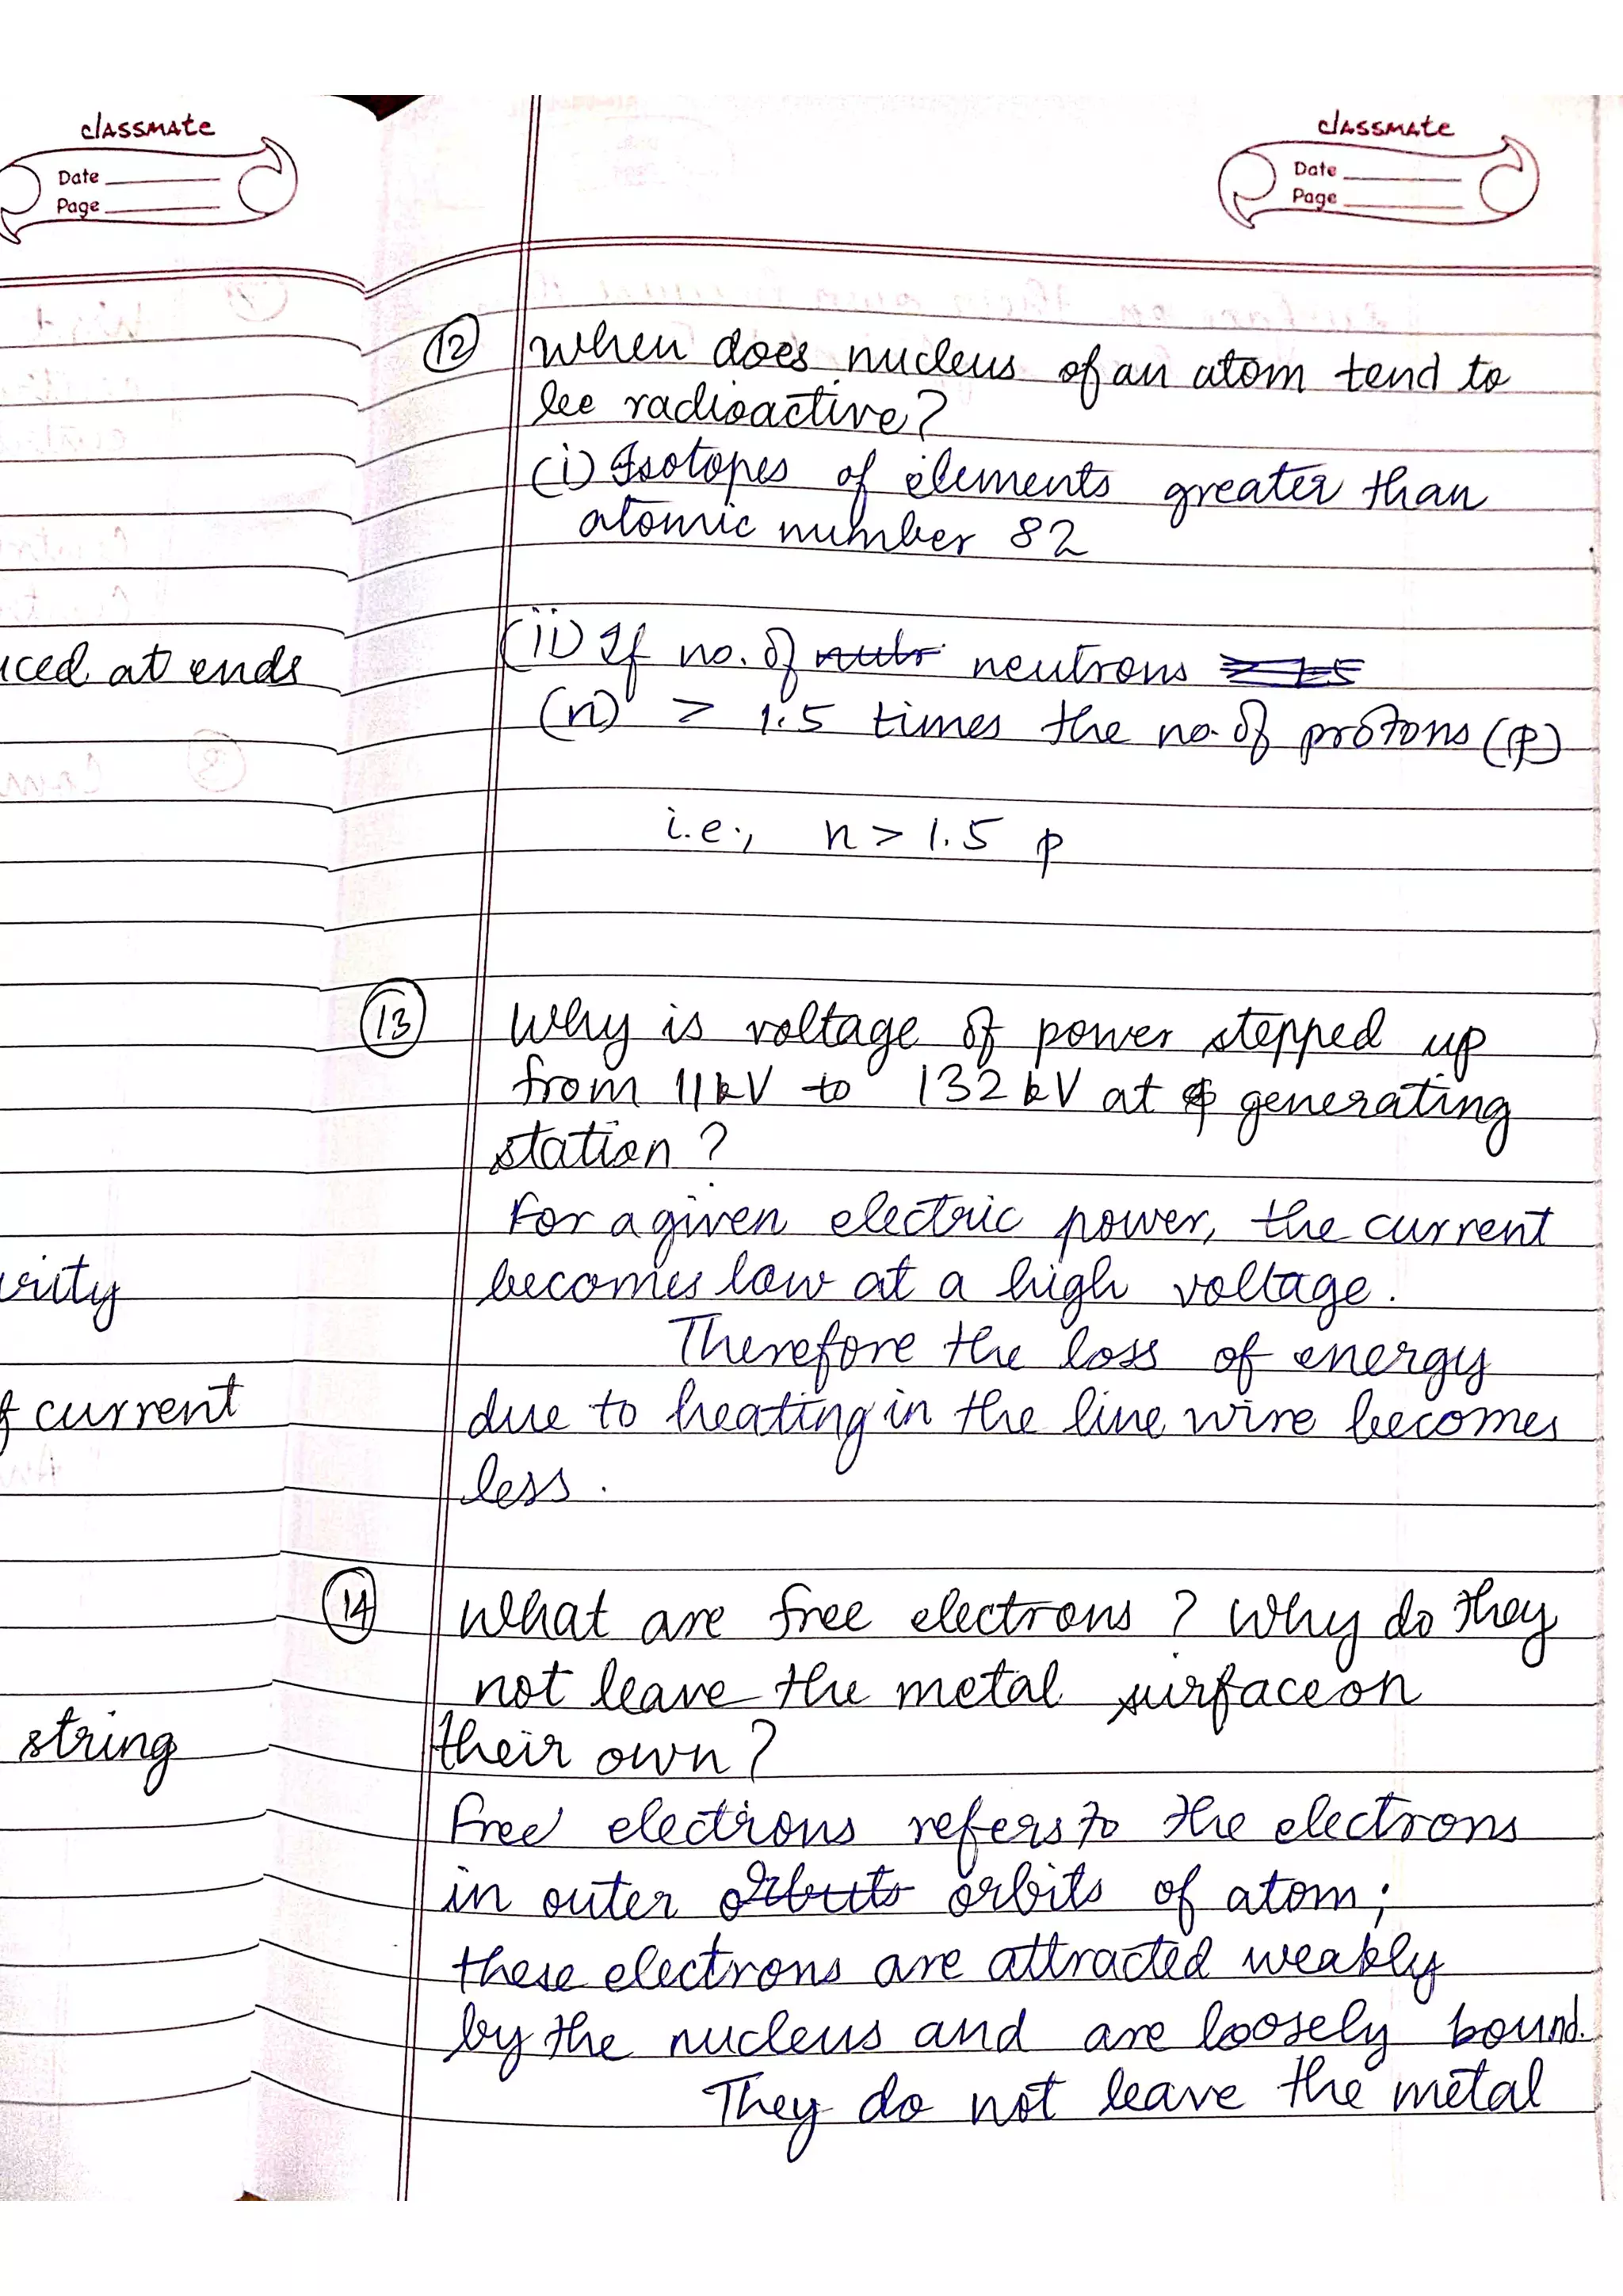 classmate
Date
Page
ced at ends
rity
current
string
classmate
Date
Page
12 When does nucleus of an atom tend to
be radioactive?
(i) Isotopes of elements greater than
atomic number 82
(ii) If no. of neutrons
(n) > 1.5 times the no. of protons (p)
i.e., n > 1.5 p
13 Why is voltage of power stepped up
from 11kV to 132 kV at generating
station?
For a given electric power, the current
becomes low at a high voltage.
Therefore the loss of energy
due to heating in the line wire becomes
less.
14 What are free electrons? Why do they
not leave the metal surface on
their own?
Free electrons refers to the electrons
in outer orbits of atom;
these electrons are attracted weakly
by the nucleus and are loosely bound.
They do not leave the metal